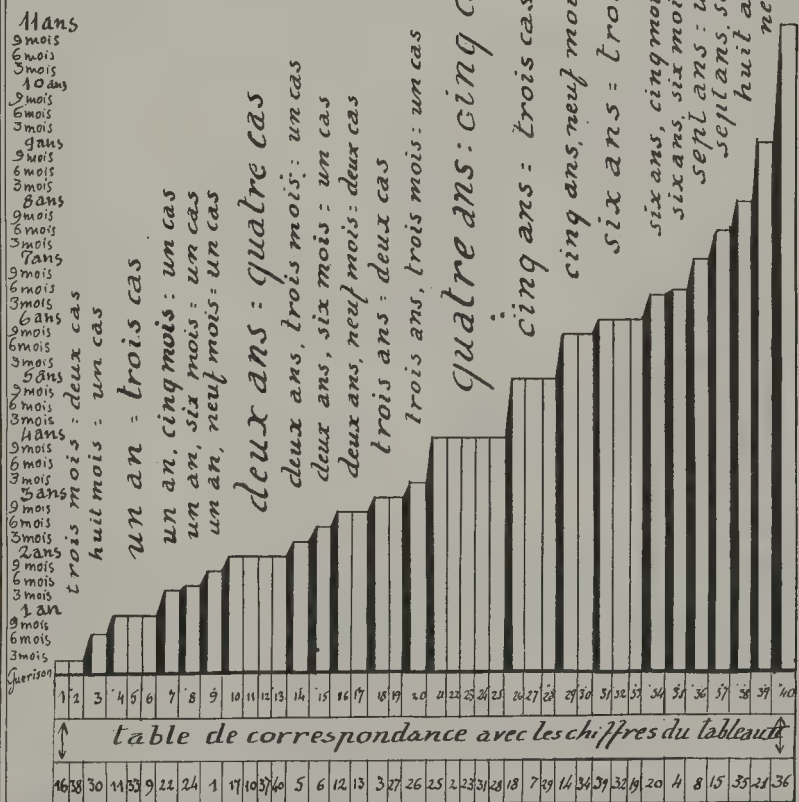 11ans
9mois
6mois
3mois
10ans
9mois
6mois
3mois
9ans
9mois
6mois
3mois
8ans
9mois
6mois
3mois
7ans
9mois
6mois
3mois
6ans
9mois
6mois
3mois
5ans
9mois
6mois
3mois
4ans
9mois
6mois
3mois
3ans
9mois
6mois
3mois
2ans
9mois
6mois
3mois
1an
9mois
6mois
3mois
Guérison
trois mois : deux cas
huit mois : un cas
un an : trois cas
un an, cinq mois : un cas
un an, six mois : un cas
un an, neuf mois : un cas
deux ans : quatre cas
deux ans, trois mois : un cas
deux ans, six mois : un cas
deux ans, neuf mois : deux cas
trois ans : deux cas
trois ans, trois mois : un cas
quatre ans : cinq c
cinq ans : trois cas
cinq ans, neuf moi
six ans : tro
six ans, cinq moi
six ans, six moi
sept ans : u
sept ans, s
huit a
ne
1 2 3 4 5 6 7 8 9 10 11 12 13 14 15 16 17 18 19 20 21 22 23 24 25 26 27 28 29 30 31 32 33 34 35 36 37 38 39 40
table de correspondance avec les chiffres du tableau
16 38 30 11 33 9 22 24 1 17 10 37 40 5 6 12 13 3 27 26 25 2 23 31 28 18 7 29 14 34 39 32 19 20 4 8 15 35 21 36